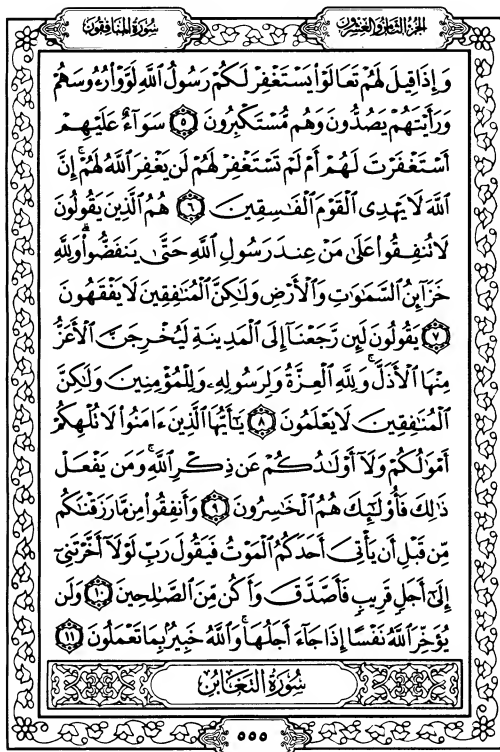 الجزء الثامن والعشرون
سورة المنافقون
وَإِذَا قِيلَ لَهُمْ تَعَالَوْاْ يَسْتَغْفِرْ لَكُمْ رَسُولُ ٱللَّهِ لَوَّوْاْ رُءُوسَهُمْ
وَرَأَيْتَهُمْ يَصُدُّونَ وَهُم مُّسْتَكْبِرُونَ ٥ سَوَآءٌ عَلَيْهِمْ
أَسْتَغْفَرْتَ لَهُمْ أَمْ لَمْ تَسْتَغْفِرْ لَهُمْ لَن يَغْفِرَ ٱللَّهُ لَهُمْۚ إِنَّ
ٱللَّهَ لَا يَهْدِى ٱلْقَوْمَ ٱلْفَٰسِقِينَ ٦ هُمُ ٱلَّذِينَ يَقُولُونَ
لَا تُنفِقُواْ عَلَىٰ مَنْ عِندَ رَسُولِ ٱللَّهِ حَتَّىٰ يَنفَضُّواْۗ وَلِلَّهِ
خَزَآئِنُ ٱلسَّمَٰوَٰتِ وَٱلْأَرْضِ وَلَٰكِنَّ ٱلْمُنَٰفِقِينَ لَا يَفْقَهُونَ
٧ يَقُولُونَ لَئِن رَّجَعْنَآ إِلَى ٱلْمَدِينَةِ لَيُخْرِجَنَّ ٱلْأَعَزُّ
مِنْهَا ٱلْأَذَلَّۚ وَلِلَّهِ ٱلْعِزَّةُ وَلِرَسُولِهِۦ وَلِلْمُؤْمِنِينَ وَلَٰكِنَّ
ٱلْمُنَٰفِقِينَ لَا يَعْلَمُونَ ٨ يَٰٓأَيُّهَا ٱلَّذِينَ ءَامَنُواْ لَا تُلْهِكُمْ
أَمْوَٰلُكُمْ وَلَآ أَوْلَٰدُكُمْ عَن ذِكْرِ ٱللَّهِۚ وَمَن يَفْعَلْ
ذَٰلِكَ فَأُوْلَٰٓئِكَ هُمُ ٱلْخَٰسِرُونَ ٩ وَأَنفِقُواْ مِن مَّا رَزَقْنَٰكُم
مِّن قَبْلِ أَن يَأْتِىَ أَحَدَكُمُ ٱلْمَوْتُ فَيَقُولَ رَبِّ لَوْلَآ أَخَّرْتَنِىٓ
إِلَىٰٓ أَجَلٍ قَرِيبٍ فَأَصَّدَّقَ وَأَكُن مِّنَ ٱلصَّٰلِحِينَ ١٠ وَلَن
يُؤَخِّرَ ٱللَّهُ نَفْسًا إِذَا جَآءَ أَجَلُهَاۚ وَٱللَّهُ خَبِيرٌۢ بِمَا تَعْمَلُونَ ١١
سُورَةُ التَّغَابُنِ
٥٥٥